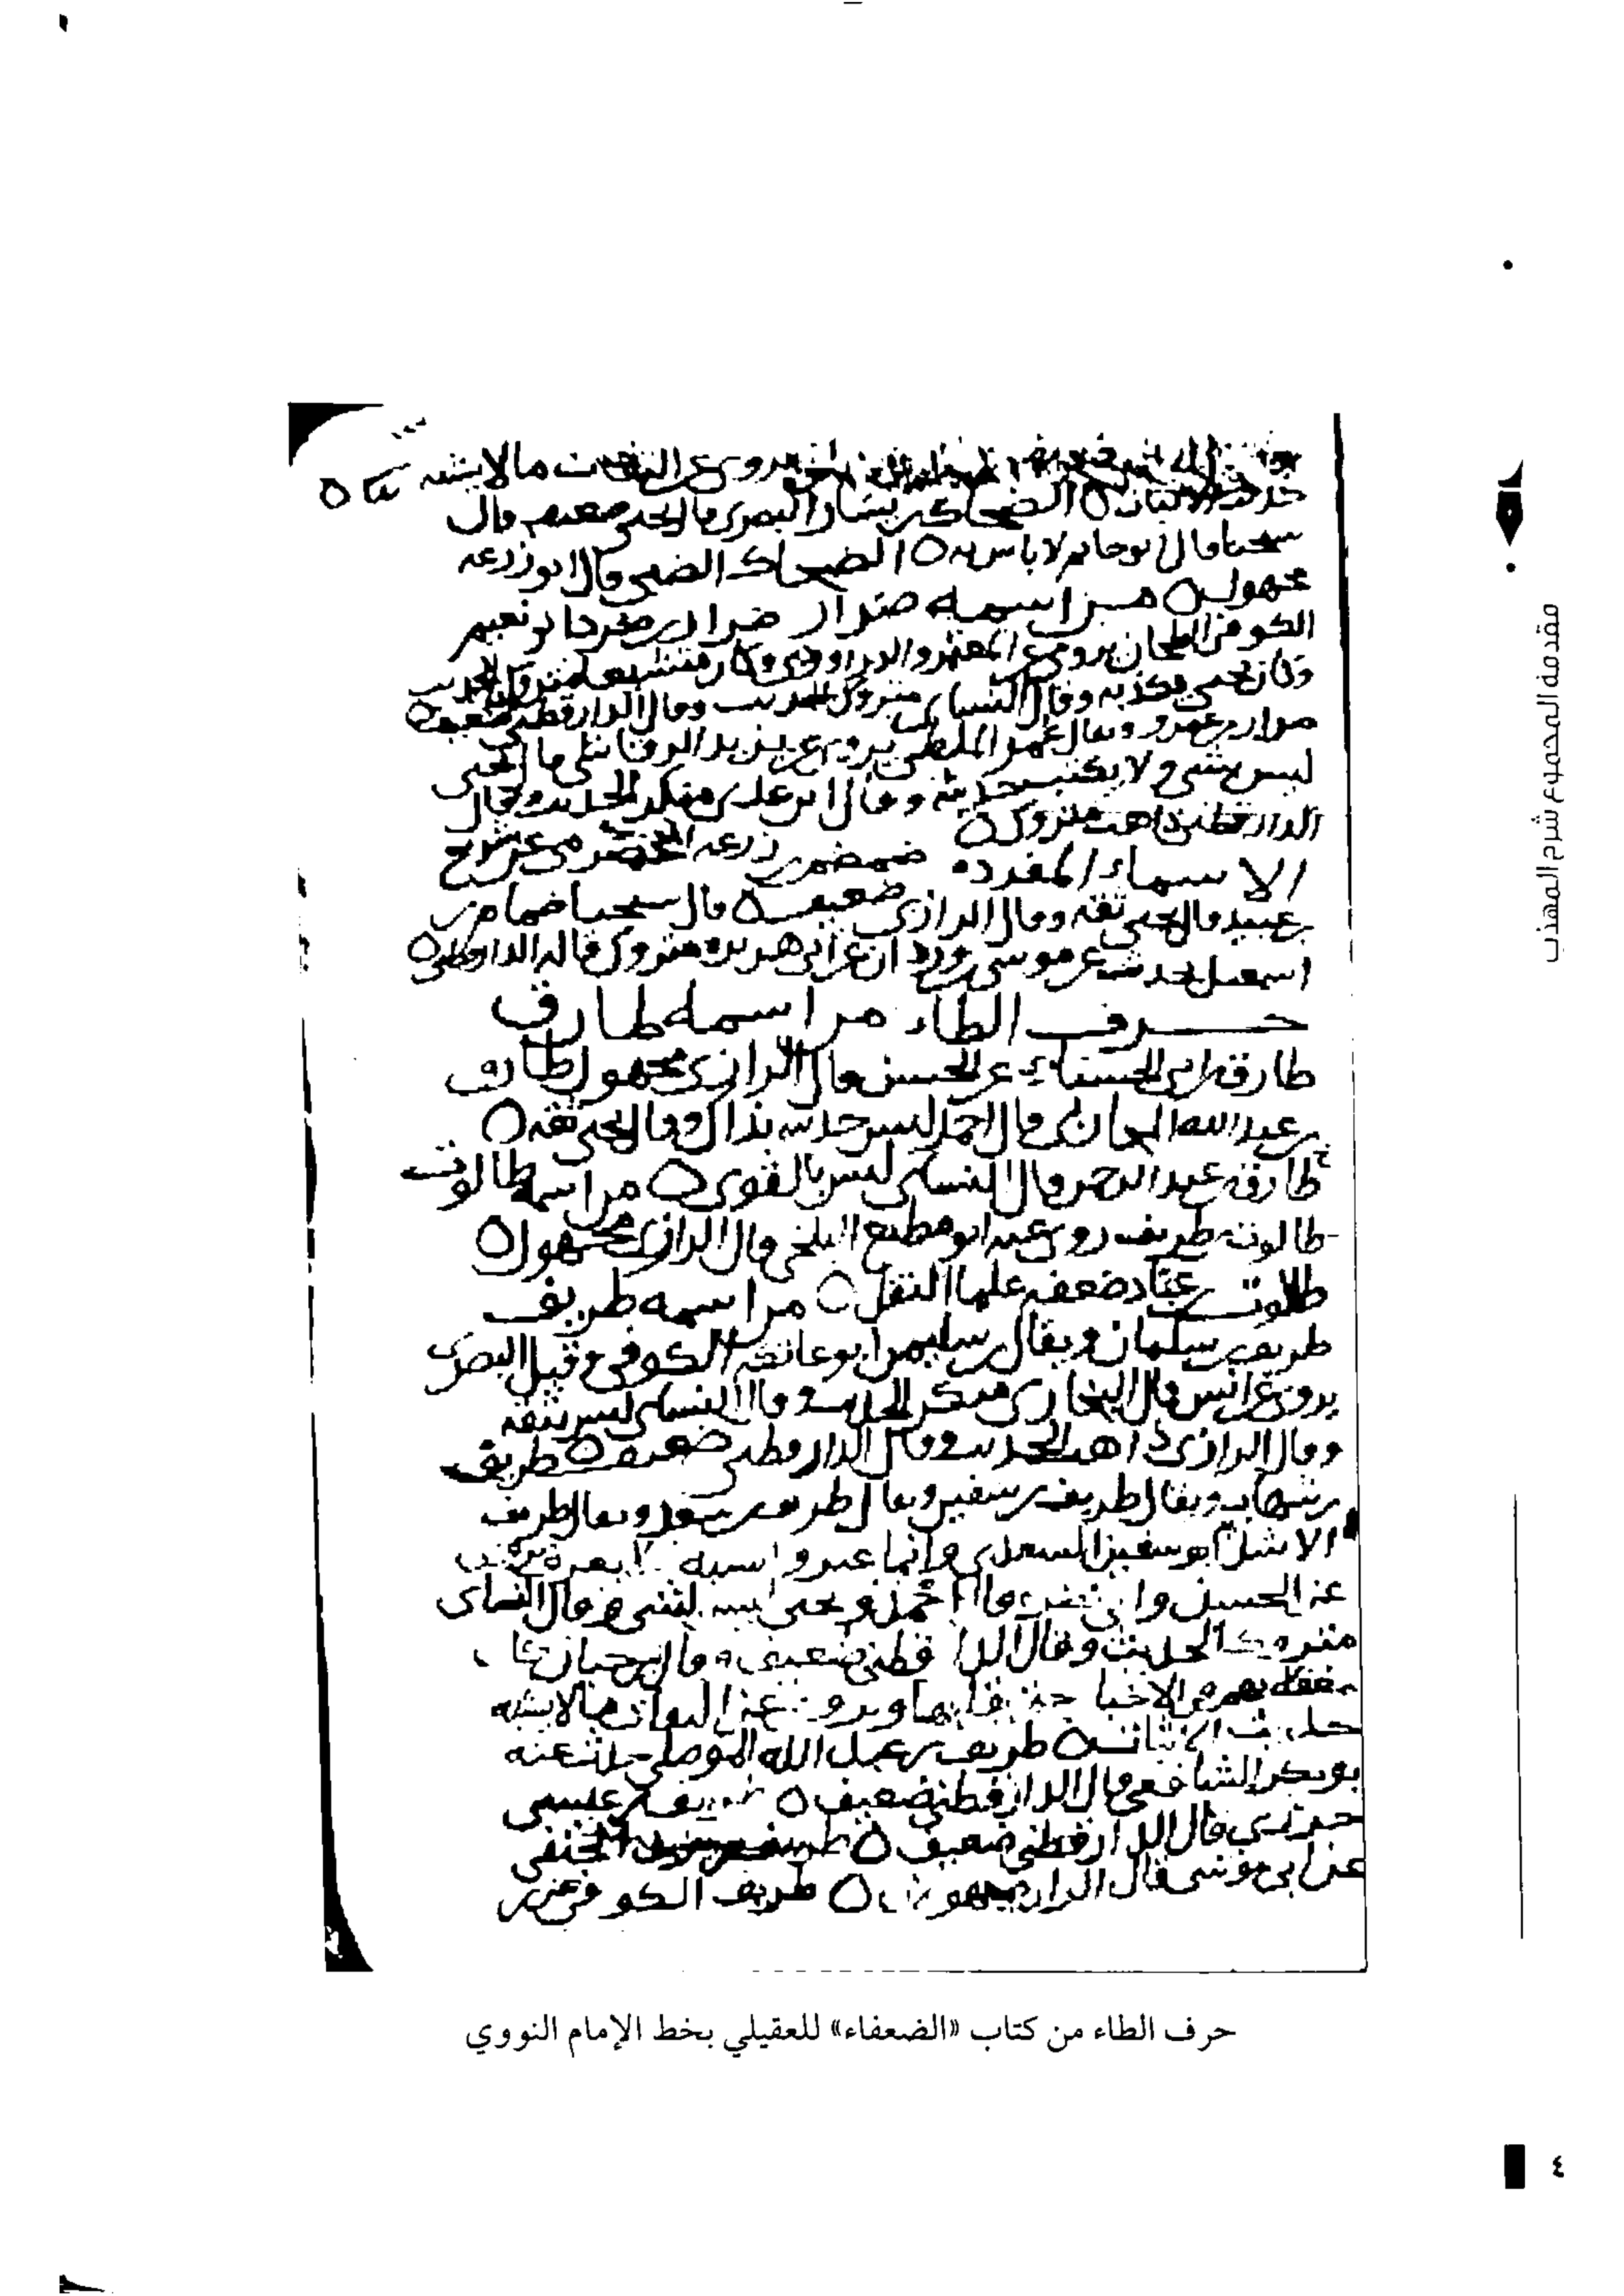 مقدمة المجموع شرح المهذب
يروي عن الثقات ما لا يشبه
حديث الاثبات ه الضحاك بن يسار البصري قال يحيى ضعيف قال
شيخنا قال ابو حاتم لا باس به ه الضحاك الضبي قال ابو زرعه
مجهول ه من اسمه ضرار ضرار بن صرد ابو نعيم
الكوفي الطحان يروي عن المعتمر والدراوردي وكان متشيعا متروك الحديث
وكان يحيى يكذبه وقال النساي متروك الحديث وقال الدارقطني ضعيف ه
ضرار بن عمرو ويقال عمر الملطي يروي عن يزيد الرقاشي قال يحيى
ليس بشي ولا يكتب حديثه وقال ابن عدي منكر الحديث وقال
الدارقطني ذاهب متروك ه
الاسماء المفرده ضمضم بن زرعه الحضرمي عن شريح
بن عبيد قال يحيى ثقه وقال الرازي ضعيف ه قال شيخنا ضمام بن
اسمعيل يحدث عن موسى بن وردان عن ابي هريره متروك قاله الدارقطني ه
حرف الطاء من اسمه طارق
طارق بن ابي الحسناء عن الحسن قال الرازي مجهول طارق
بن عبدالله قال احمد ليس حديثه بذاك وقال يحيى ثقه ه
طارق بن عبد الرحمن قال النساي ليس بالقوي ه من اسمه طالوت
طالوت بن طريف روى عنه ابو مطيع البلخي قال الرازي مجهول ه
طالوت بن عباد ضعفه علما النقل ه من اسمه طريف
طريف بن سلمان ويقال بن سليمن ابو عاتكه الكوفي وقيل البصري
يروي عن انس قال البخاري منكر الحديث وقال النساي ليس بثقه
وقال الرازي ذاهب الحديث وقال الدارقطني ضعيف ه طريف
بن شهاب ويقال طريف بن سفين ويقال طريف بن سعد ويقال طريف
الاشل ابو سفين السعدي وانما غيروا نسبه
عن الحسن وابي نضره قال احمد ويحيى ليس بشي وقال النساي
متروك الحديث وقال الدارقطني ضعيف وقال بن حبان كان
مغفلا يهم في الاخبار حتى يقلبها ويروي عن الثقات مالا يشبه
حديث الاثبات ه طريف بن عبد الله الموصلي حدث عنه
ابو بكر الشافعي قال الدارقطني ضعيف ه طريف بن عيسى
قال الدارقطني ضعيف ه طريف بن الحنفي
عن ابي موسى قال مجهول ه طريف الكوفي عن
حرف الطاء من كتاب «الضعفاء» للعقيلي بخط الإمام النووي
٤